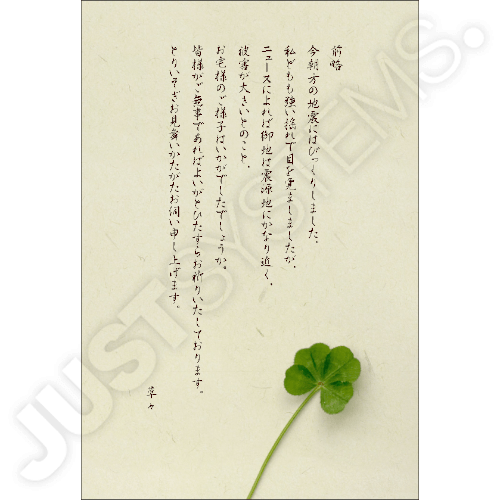 前略
今朝方の地震にはびっくりしました。
私どもも強い揺れで目を覚ましましたが、
ニュースによれば御地は震源地にかなり近く、
被害が大きいとのこと、
お宅様のご様子はいかがでしたでしょうか。
皆様がご無事であればよいがとひたすらお祈りいたしております。
とりいそぎお見舞いかたがたお伺い申し上げます。
草々
JUSTSYSTEMS.